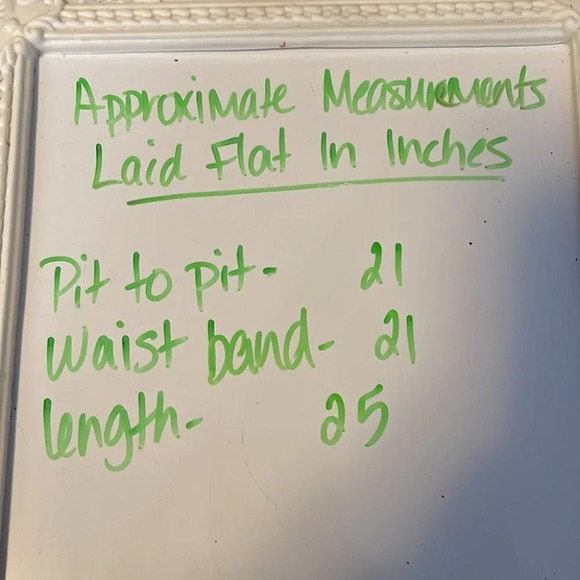 Approximate Measurements
Laid Flat In Inches
Pit to pit- 21
Waist band- 21
length- 25